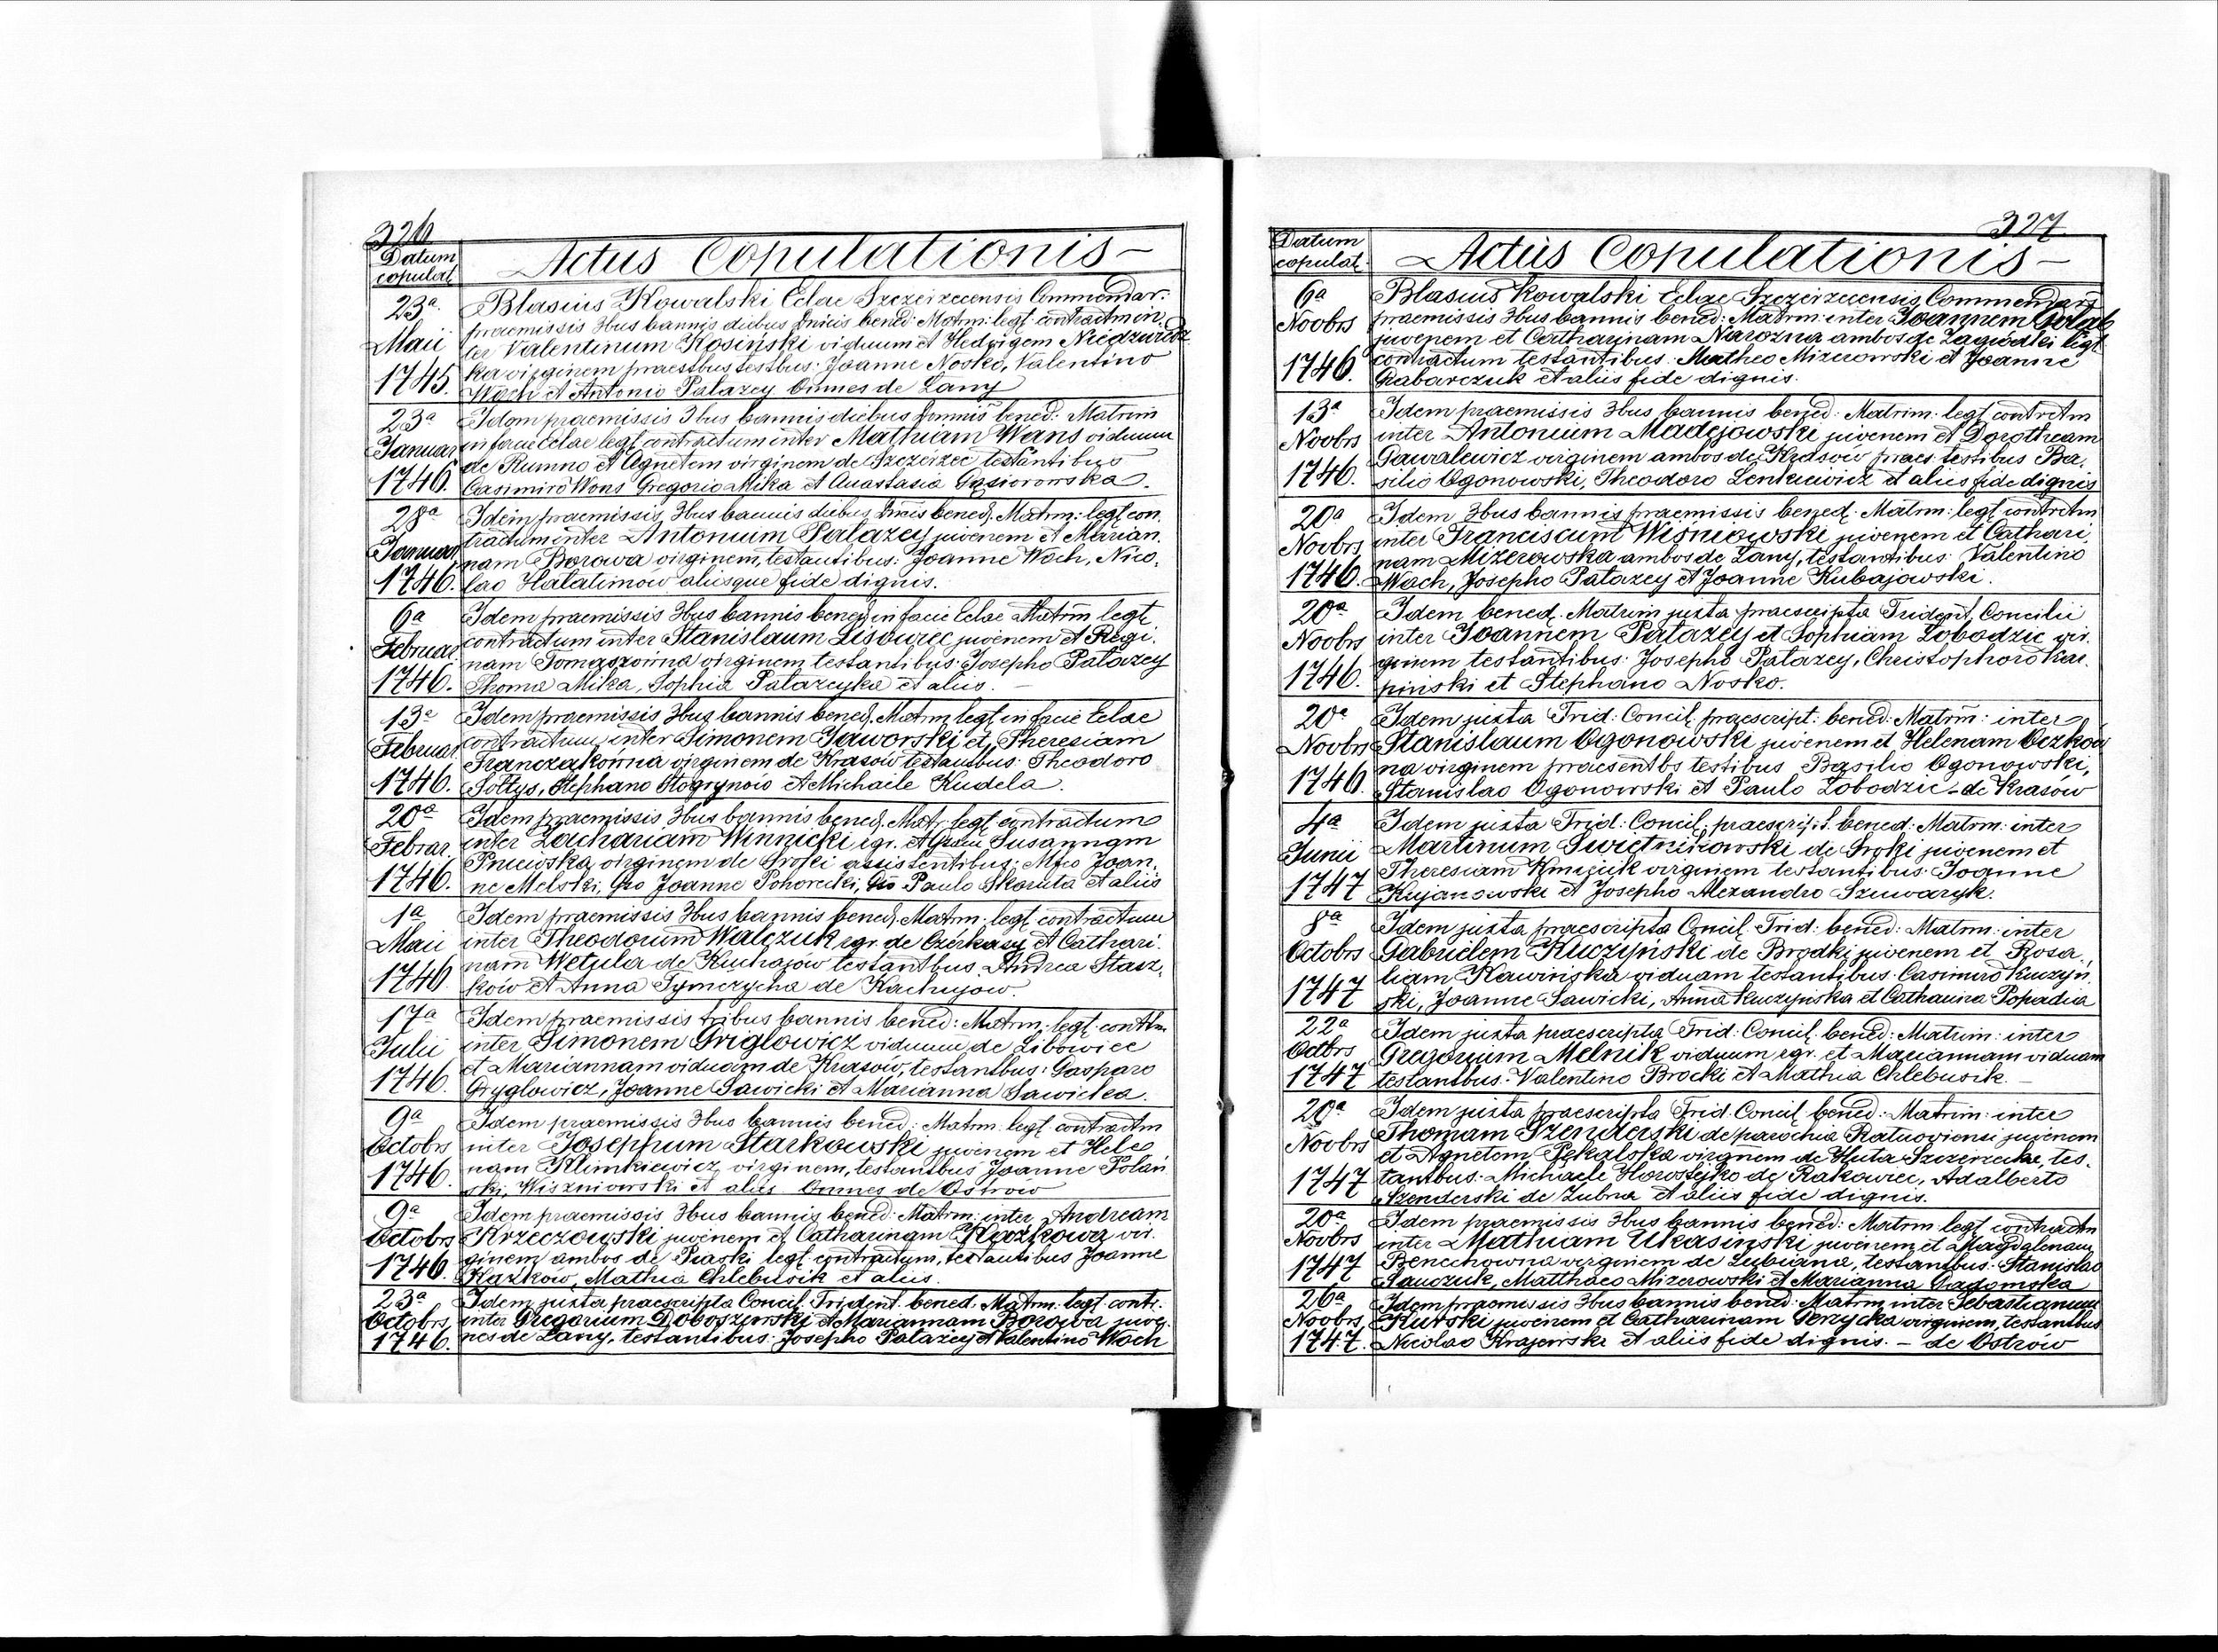 326
Datum
copulat.
Actus Copulationis
23a
Maii
1745.
Blasius Kowalski Eclae Szczerzecensis Commendar.
praemissis 3bus bannis diebus Dnicis bened: Matrm: legt. contractm in
ter Valentinum Kosiński viduum et Hedvigem Niedzwiedz
ka virginem praestbus testbus: Joanne Nosko, Valentino
Wach et Antonio Patazey Omnes de Lany
23a
Januar
1746.
Idem praemissis 3bus bannis diebus Domnis bened: Matrim
in facie Eclae legt. contractum inter Mathiam Wans viduum
de Rumno et Agnetem virginem de Szczerzec testantibus
Casimiro Wons Gregorio Mika et Anastasia Gąsiorowska.
28a
Januar
1746.
Idem praemissis 3bus bannis diebus Dnicis bened. Matrm: legt. con
tractum inter Antonium Patazey juvenem et Marian
nam Borowa virginem, testantibus: Joanne Wach, Nico
lao Halatinow aliisque fide dignis.
6a
Februar
1746.
Idem praemissis 3bus bannis bened. in facie Eclae Matrm legt.
contractum inter Stanislaum Lisowiec juvenem et Regi
nam Tomaszowna virginem testantibus: Josepho Patazey
Thoma Mika, Sophia Patazeyka et aliis. –
13a
Februar
1746.
Idem praemissis 3bus bannis bened. Matrm legt. in facie Eclae
contractum inter Simonem Jaworski et Theresiam
Franczakowna virginem de Krasow testantbus: Theodoro
Sołtys, Stephano Stogrynoio et Michaele Kudela.
20a
Febrar
1746.
Idem praemissis 3bus bannis bened. Matr. legt. contractum
inter Zachariam Winnicki rgr. et Susannam
Pniewska virginem de Sroki assistentibus: Mfco Joan
ne Melski, Gso Joanne Pohorecki, Gso Paulo Skaruta et aliis
1a
Maii
1746
Idem praemissis 3bus bannis bened. Matrm. legt. contractum
inter Theodorum Walczuk rgr. de Czerkasy et Cathari
nam Wetula de Kuhajow testantbus. Andrea Stasz
kow et Anna Tymczycha de Kachujow.
17a
Julii
1746.
Idem praemissis tribus bannis bened: Matrm. legt. conttm
inter Simonem Griglowicz viduum de Libowiec
et Mariannam viduam de Krasów, testantbus: Gasparo
Gryglowicz, Joanne Sawicki et Marianna Sawicka.
9a
Octobrs
1746.
Idem praemissis 3bus bannis bened: Matrm. legt. contractm
inter Josephum Starkowski juvenem et Hele
nam Klimkiewicz virginem, testantbus Joanne Polań
ski, Wiszniowski et aliis Omnes de Ostrów
9a
Octobrs
1746
Idem praemissis 3bus bannis bened: Matrm: inter Andream
Krzeczowski juvenem et Catharinam Kazkowa vir
ginem ambos de Piaski legt. contractum, testantibus Joanne
Kazkow, Mathia Chlebusik et aliis.
23a
Octobrs
1746.
Idem juxta praescripta Concil. Trident. bened. Matrm. legt. contr.
inter Gregorium Doboszewski et Mariannam Borowa juve
nes de Lany, testantibus: Josepho Patazey et Valentino Wach
327
Datum
copulat.
Actus Copulationis
6a
Noobrs
1746.
Blasius Kowalski Eclae Szczerzecensis Commendars
praemissis 3bus bannis bened: Matrm: inter Joannem Gołąb
juvenem et Catharinam Narozna ambos de Zagrodki legt
contractum testantibus: Matheo Mizerowski et Joanne
Grabarczuk et aliis fide dignis.
13a
Noobrs
1746.
Idem praemissis 3bus bannis bened: Matrim: legt contrctm
inter Antonium Madejowski juvenem et Dorotheam
Gawalewicz virginem ambos de Krasow praes. testibus Ba
silio Ogonowski, Theodoro Lenkiewicz et aliis fide dignis
20a
Noobrs
1746.
Idem 3bus bannis praemissis bened: Matrm: legt. contrctm
inter Franciscum Wiśniowski juvenem et Cathari
nam Mizerowska ambos de Lany, testantibus: Valentino
Wach, Josepho Patazey et Joanne Kubajowski.
20a
Noobrs
1746.
Idem bened. Matrim juxta praescripta Trident. Concilii
inter Joannem Patazey et Sophiam Łobodzic vir
ginem testantibus: Josepho Patazey, Christophoro Kar
piński et Stephano Nosko.
20a
Noobrs
1746.
Idem juxta Trid: Concil. praescript: bened: Matrm: inter
Stanislaum Ogonowski juvenem et Helenam Oczkow
na virginem praesentbs testibus Basilio Ogonowski,
Stanislao Ogonowski et Paulo Łobodzic de Krasów
4a
Junii
1747
Idem juxta Trid: Concil: praescript. bened: Matrm: inter
Martinum Swietnikowski de Sroki juvenem et
Theresiam Kmicik virginem testantibus: Joanne
Kujanowski et Josepho Alexandro Szuwaryk.
8a
Octobrs
1747
Idem juxta praescripta Concil. Trid: bened: Matrm: inter
Gabrielem Kuczyński de Brodki juvenem et Rosa
liam Kawińska viduam testantibus: Casimiro Kuczyń
ski, Joanne Sawicki, Anna Kuczyńska et Catharina Popadia
22a
Octbrs
1747
Idem juxta praescripta Trid: Concil: bened: Matrim: inter
Gregorium Melnik viduum rgr. et Mariannam viduam
testantbus: Valentino Brocki et Mathia Chlebusik. –
20a
Noobrs
1747
Idem juxta praescripta Trid. Concil bened: Matrim: inter
Thomam Szenderski de parochia juvenem
et Agnetem Pękalska virginem de Huta Szczerzecka, tes
tantbus: Michaele Horoszejko de Rakowiec, Adalberto
Szenderski de Zubra et aliis fide dignis.
20a
Noobrs
1747
Idem praemissis 3bus bannis bened: Matrm legt contractm
inter Mathiam Ukasinski juvenem et Magdalenam
Benechowna virginem de Lubiana, testantbus: Stanislao
Sauczuk, Matthaeo Mizerowski et Marianna Gadomska
26a
Noobrs
1747.
Idem praemissis 3bus bannis bened: Matrm inter Sebastianum
Kurski juvenem et Catharinam Gerzycka virginem, testantbus
Nicolao Krajewski et aliis fide dignis. – de Ostrów